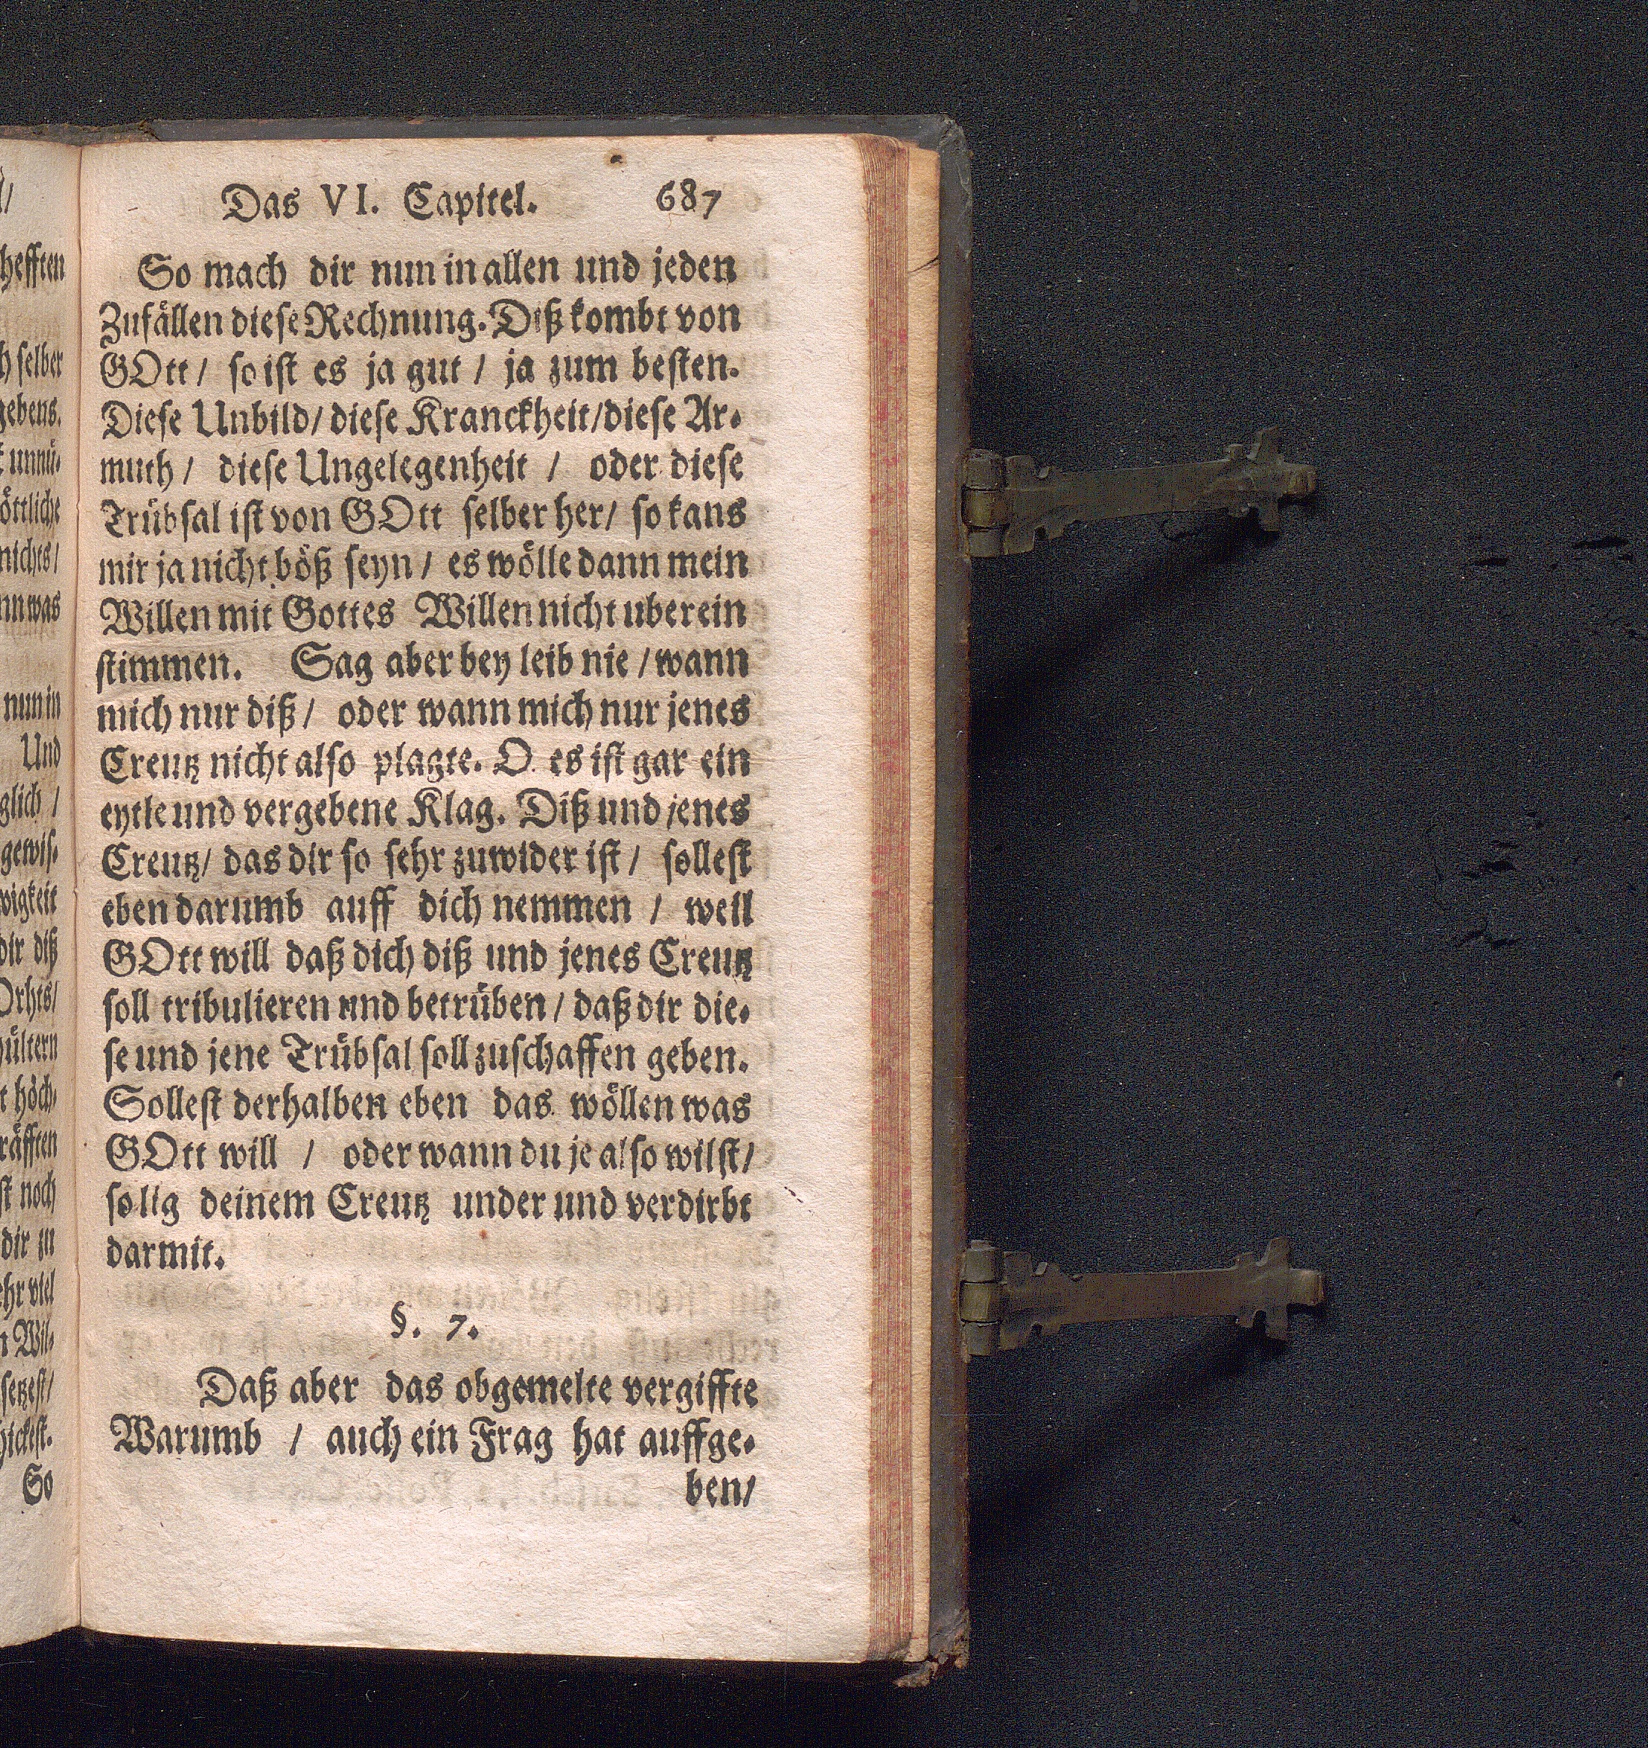 Das VI. Capitel. 687
So mach dir nun in allen und jeden
Zufällen diese Rechnung. Diß kombt von
GOtt / so ist es ja gut / ja zum besten.
Diese Unbild / diese Kranckheit / diese Ar-
muth / diese Ungelegenheit / oder diese
Trübsal ist von GOtt selber her / so kans
mir ja nicht böß seyn / es wölle dann mein
Willen mit Gottes Willen nicht uberein
stimmen. Sag aber bey leib nie / wann
mich nur diß / oder wann mich nur jenes
Creutz nicht also plagte. O es ist gar ein
eytle und vergebene Klag. Diß und jenes
Creutz / das dir so sehr zuwider ist / sollest
eben darumb auff dich nemmen / weil
GOtt will daß dich diß und jenes Creutz
soll tribulieren und betrüben / daß dir die-
se und jene Trübsal soll zuschaffen geben.
Sollest derhalben eben das wöllen was
GOtt will / oder wann du je also wilst /
so lig deinem Creutz under und verdirbt
darmit.
§. 7.
Daß aber das obgemelte vergiffte
Warumb / auch ein Frag hat auffge-
ben /
hefften
selber
gebens.
unnü-
öttliche
nichts /
was
nun in
Und
glich /
gewis-
wigkeit
dir diß
Orhts /
höch-
räfften
noch
dir zu
viel
Wil-
setzest /
So